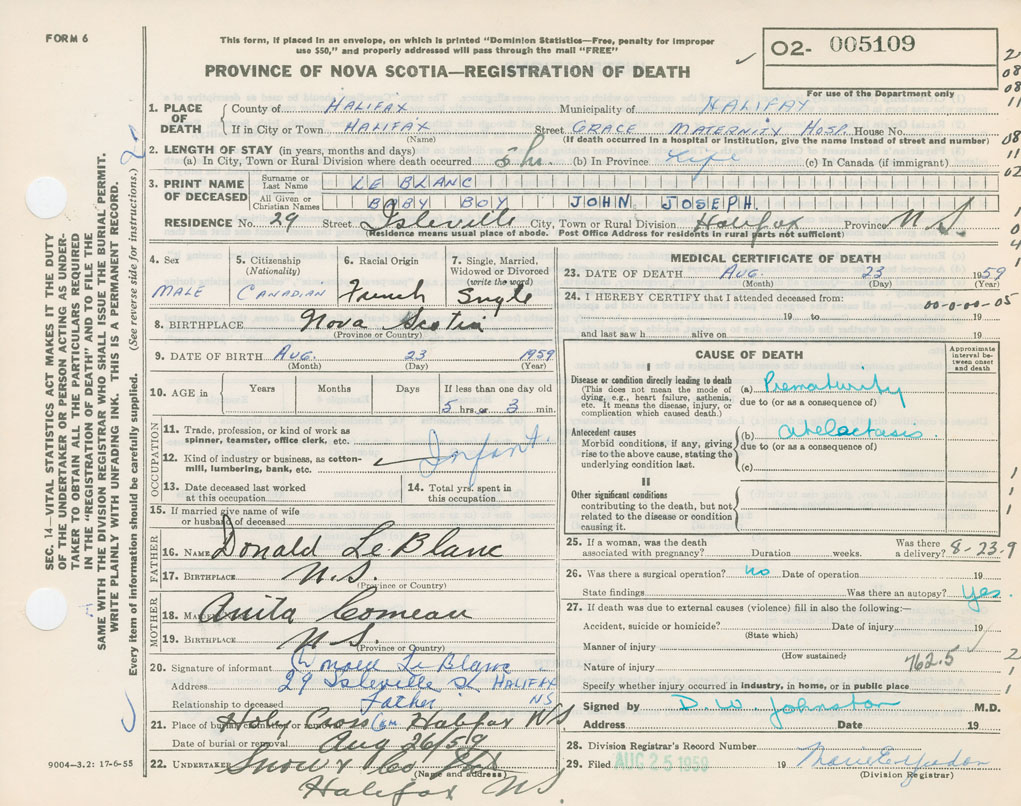 FORM 6
This form, if placed in an envelope, on which is printed "Dominion Statistics—Free, penalty for improper
use $50," and properly addressed will pass through the mail "FREE"
PROVINCE OF NOVA SCOTIA—REGISTRATION OF DEATH
02- 005109
For use of the Department only
SEC. 14—VITAL STATISTICS ACT MAKES IT THE DUTY
OF THE UNDERTAKER OR PERSON ACTING AS UNDER-
TAKER TO OBTAIN ALL THE PARTICULARS REQUIRED
IN THE "REGISTRATION OF DEATH" AND TO FILE THE
SAME WITH THE DIVISION REGISTRAR WHO SHALL ISSUE THE BURIAL PERMIT.
WRITE PLAINLY WITH UNFADING INK. THIS IS A PERMANENT RECORD.
Every item of information should be carefully supplied. (See reverse side for instructions.)
1. PLACE OF DEATH
County of HALIFAX Municipality of HALIFAX
If in City or Town HALIFAX Street GRACE MATERNITY HOSP. House No.
(Name) (If death occurred in a hospital or institution, give the name instead of street and number)
2. LENGTH OF STAY (in years, months and days)
(a) In City, Town or Rural Division where death occurred 5 hr. (b) In Province Life (c) In Canada (if immigrant)
3. PRINT NAME OF DECEASED
Surname or Last Name LE BLANC
All Given or Christian Names BABY BOY JOHN JOSEPH.
RESIDENCE No. 29 Street Isleville City, Town or Rural Division Halifax Province N S.
(Residence means usual place of abode. Post Office Address for residents in rural parts not sufficient)
4. Sex MALE
5. Citizenship (Nationality) CANADIAN
6. Racial Origin French
7. Single, Married, Widowed or Divorced (write the word) Single
8. BIRTHPLACE Nova Scotia
(Province or Country)
9. DATE OF BIRTH AUG. 23 1959
(Month) (Day) (Year)
10. AGE in Years Months Days If less than one day old
5 hrs. or 3 min.
OCCUPATION
11. Trade, profession, or kind of work as
spinner, teamster, office clerk, etc.
12. Kind of industry or business, as cotton-
mill, lumbering, bank, etc. Infant.
13. Date deceased last worked
at this occupation
14. Total yrs. spent in
this occupation
15. If married give name of wife
or husband of deceased
FATHER
16. NAME Donald Le Blanc
17. BIRTHPLACE N.S.
(Province or Country)
MOTHER
18. Anita Comeau
19. BIRTHPLACE N S.
(Province or Country)
20. Signature of informant Donald Le Blanc
Address 29 Isleville St HALIFAX
NS
Relationship to deceased Father
21. Place of burial Holy Cross Cem Halifax NS
Date of burial or removal Aug 26/59
22. UNDERTAKER Snow & Co
(Name and address)
Halifax NS
9004—3.2: 17-6-55
MEDICAL CERTIFICATE OF DEATH
23. DATE OF DEATH AUG. 23 1959
(Month) (Day) (Year)
24. I HEREBY CERTIFY that I attended deceased from: 00-0-00-05
19 to 19
and last saw h alive on 19
CAUSE OF DEATH
Approximate interval between onset and death
I
Disease or condition directly leading to death
(This does not mean the mode of
dying, e.g., heart failure, asthenia,
etc. It means the disease, injury, or
complication which caused death.)
(a) Prematurity
due to (or as a consequence of)
Antecedent causes
Morbid conditions, if any, giving
rise to the above cause, stating the
underlying condition last.
(b) atelectasis.
due to (or as a consequence of)
(c)
II
Other significant conditions
contributing to the death, but not
related to the disease or condition
causing it.
25. If a woman, was the death
associated with pregnancy? Duration weeks. Was there
a delivery? 8-23-9
26. Was there a surgical operation? no Date of operation 19
State findings Was there an autopsy? yes.
27. If death was due to external causes (violence) fill in also the following:—
Accident, suicide or homicide? Date of injury 19
(State which)
Manner of injury
(How sustained)
762.5
Nature of injury
Specify whether injury occurred in industry, in home, or in public place
Signed by D. W. Johnston M.D.
Address Date 19
28. Division Registrar's Record Number
29. Filed AUG 25 1959 19
(Division Registrar)